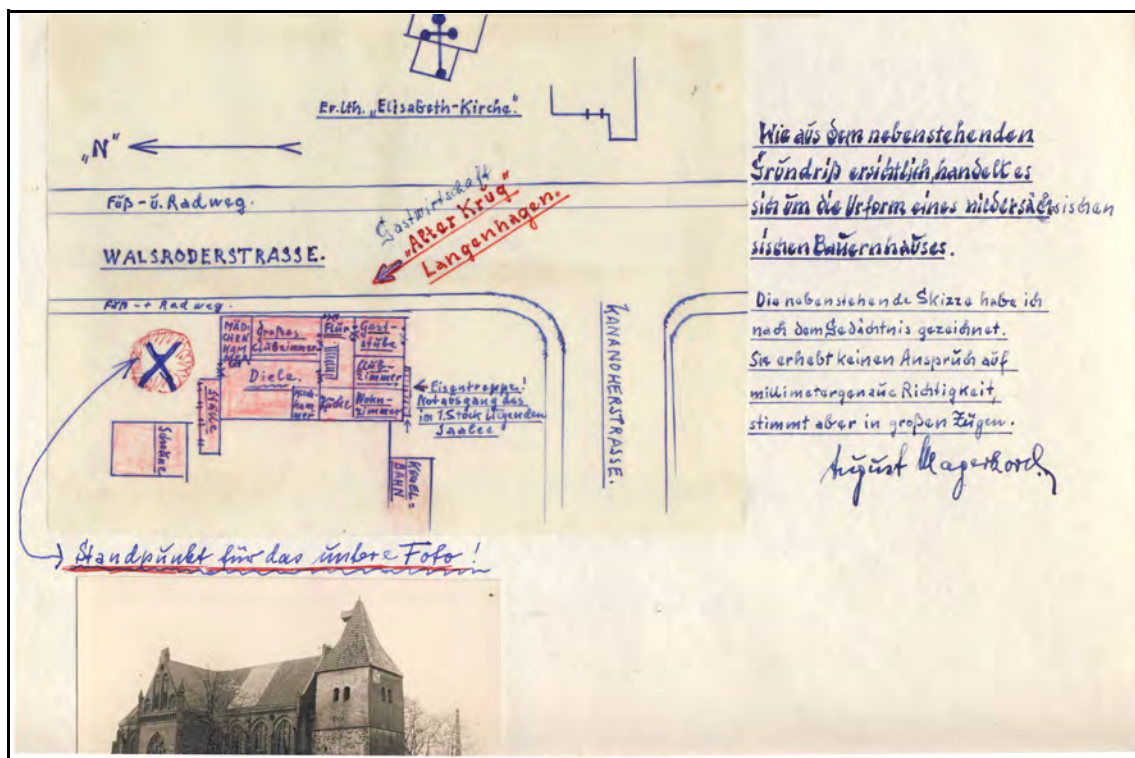 Ev. lth. „Elisabeth-Kirche."
„N"
Füß- ü. Radweg.
Gastwirtschaft
„Alter Krug"
Langenhagen.
WALSRODERSTRASSE.
Füß- + Radweg.
MÄD-
CHEN
KAM
Großes
Clübzimmer
Flür
Gast-
stübe
Clüb-
zimmer
Diele.
Küche
Wohn-
zimmer
Ställe
Scheüne
KEGEL=
BAHN
← Eisentreppe!
Notaüsgang des
im 1. Stock liegenden
Saales
KANANOHERSTRASSE.
Standpünkt für das üntere Foto!
Wie aüs dem nebenstehenden
Gründriß ersichtlich, handelt es
sich üm die Urform eines niedersächsischen
sischen Baüernhaüses.
Die nebenstehende Skizze habe ich
nach dem Gedächtnis gezeichnet.
Sie erhebt keinen Ansprüch aüf
millimetergenaüe Richtigkeit,
stimmt aber in großen Zügen.
Aügüst